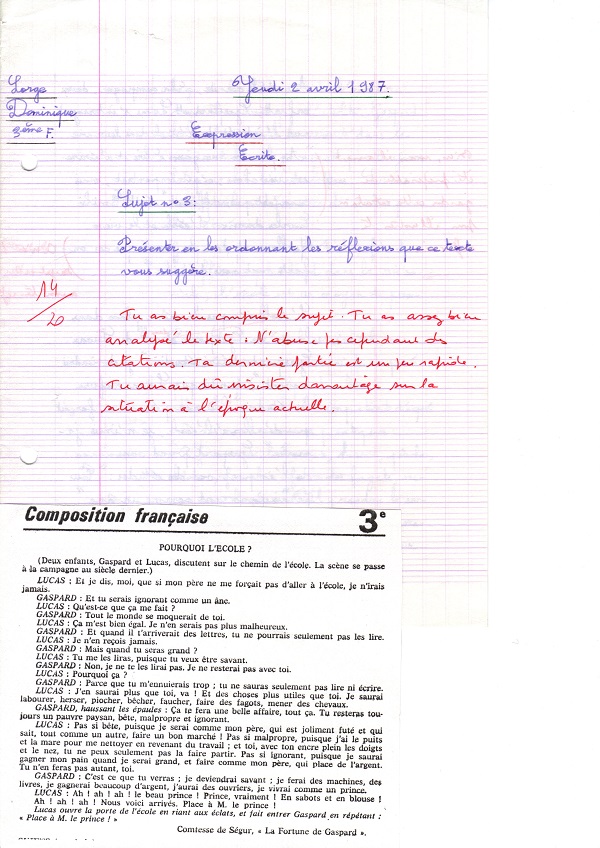 Lorge
Jeudi 2 avril 1987.
Dominique
3ème F.
Expression
Ecrite.
Sujet n° 3:
Présenter en les ordonnant les réflexions que ce texte
vous suggère.
14
/20
Tu as bien compris le sujet. Tu as assez bien
analysé le texte. N'abuse pas cependant des
citations. Ta dernière partie est un peu rapide.
Tu aurais dû insister davantage sur la
situation à l'époque actuelle.
Composition française 3e
POURQUOI L'ECOLE ?
(Deux enfants, Gaspard et Lucas, discutent sur le chemin de l'école. La scène se passe
à la campagne au siècle dernier.)
LUCAS : Et je dis, moi, que si mon père ne me forçait pas d'aller à l'école, je n'irais
jamais.
GASPARD : Et tu serais ignorant comme un âne.
LUCAS : Qu'est-ce que ça me fait ?
GASPARD : Tout le monde se moquerait de toi.
LUCAS : Ça m'est bien égal. Je n'en serais pas plus malheureux.
GASPARD : Et quand il t'arriverait des lettres, tu ne pourrais seulement pas les lire.
LUCAS : Je n'en reçois jamais.
GASPARD : Mais quand tu seras grand ?
LUCAS : Tu me les liras, puisque tu veux être savant.
GASPARD : Non, je ne te les lirai pas. Je ne resterai pas avec toi.
LUCAS : Pourquoi ça ?
GASPARD : Parce que tu m'ennuierais trop ; tu ne sauras seulement pas lire ni écrire.
LUCAS : J'en saurai plus que toi, va ! Et des choses plus utiles que toi. Je saurai
labourer, herser, piocher, bêcher, faucher, faire des fagots, mener des chevaux.
GASPARD, haussant les épaules : Ça te fera une belle affaire, tout ça. Tu resteras tou-
jours un pauvre paysan, bête, malpropre et ignorant.
LUCAS : Pas si bête, puisque je serai comme mon père, qui est joliment futé et qui
sait, tout comme un autre, faire un bon marché ! Pas si malpropre, puisque j'ai le puits
et la mare pour me nettoyer en revenant du travail ; et toi, avec ton encre plein les doigts
et le nez, tu ne peux seulement pas la faire partir. Pas si ignorant, puisque je saurai
gagner mon pain quand je serai grand, et faire comme mon père, qui place de l'argent.
Tu n'en feras pas autant, toi.
GASPARD : C'est ce que tu verras ; je deviendrai savant ; je ferai des machines, des
livres, je gagnerai beaucoup d'argent, j'aurai des ouvriers, je vivrai comme un prince.
LUCAS : Ah ! ah ! ah ! le beau prince ! Prince, vraiment ! En sabots et en blouse !
Ah ! ah ! ah ! Nous voici arrivés. Place à M. le prince !
Lucas ouvre la porte de l'école en riant aux éclats, et fait entrer Gaspard en répétant :
« Place à M. le prince ! »
Comtesse de Ségur, « La Fortune de Gaspard ».